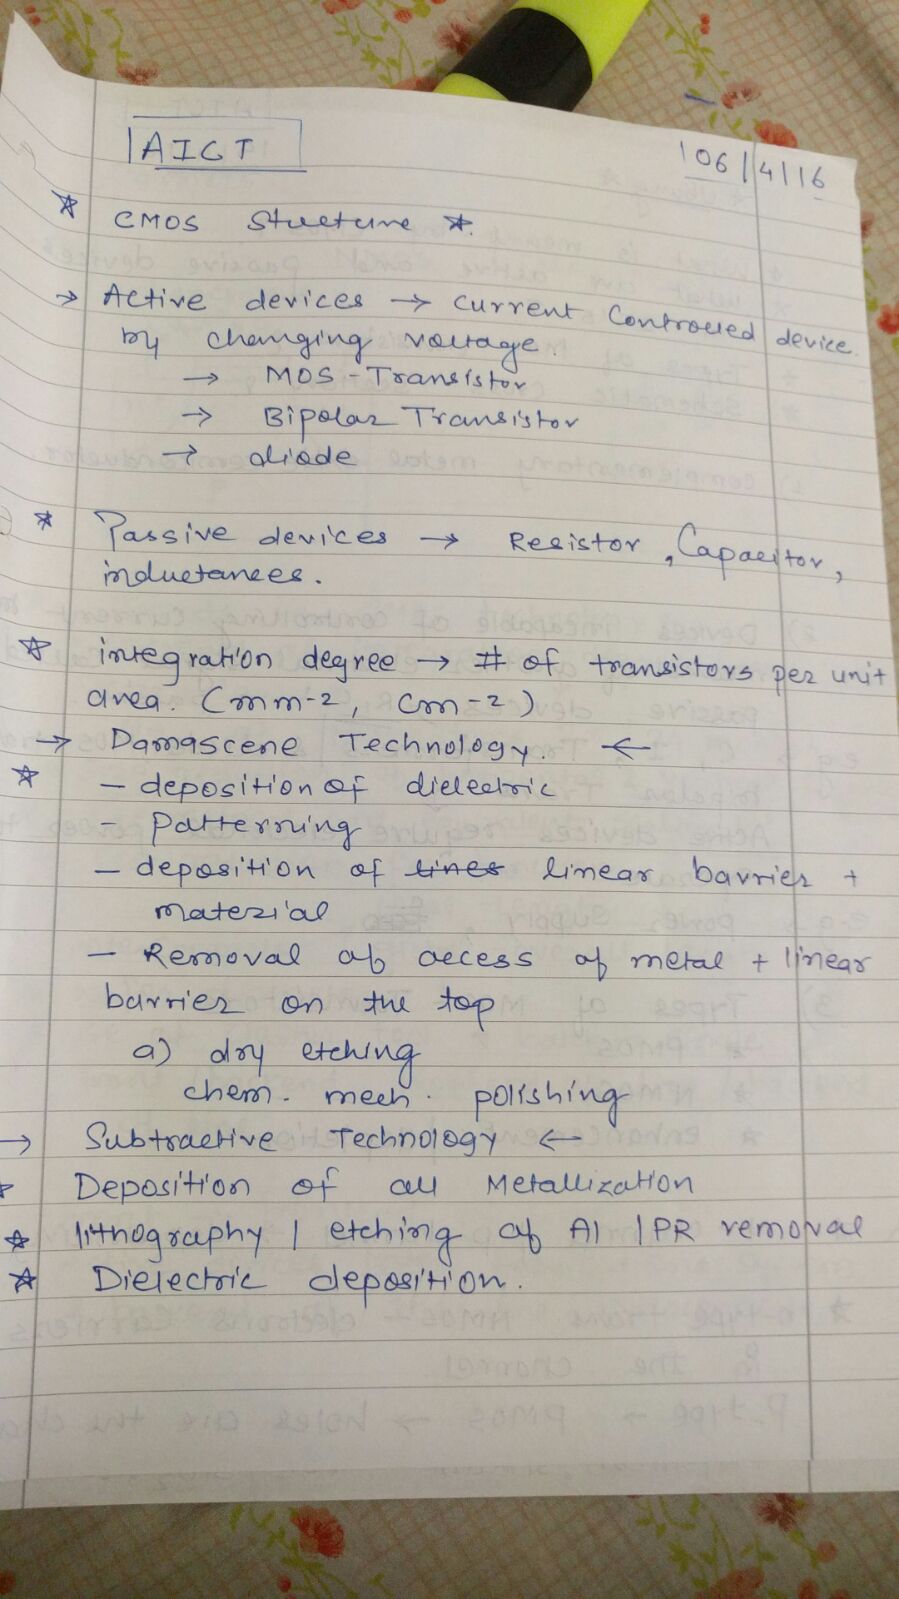 AICT
06/4/16
☆ CMOS Structure ☆.
→ Active devices → Current Controlled device
by changing voltage.
→ MOS-Transistor
→ Bipolar Transistor
→ diode
☆ Passive devices → Resistor, Capacitor,
inductances.
☆ integration degree → # of transistors per unit
area. (mm-2, cm-2)
→ Damascene Technology. ←
☆ - deposition of dielectric
- Patterning
- deposition of lines linear barrier +
material
- Removal of access of metal + linear
barrier on the top
a) dry etching
chem. mech. polishing
→ Subtractive Technology ←
☆ Deposition of all Metallization
☆ lithography / etching of Al / PR removal
☆ Dielectric deposition.